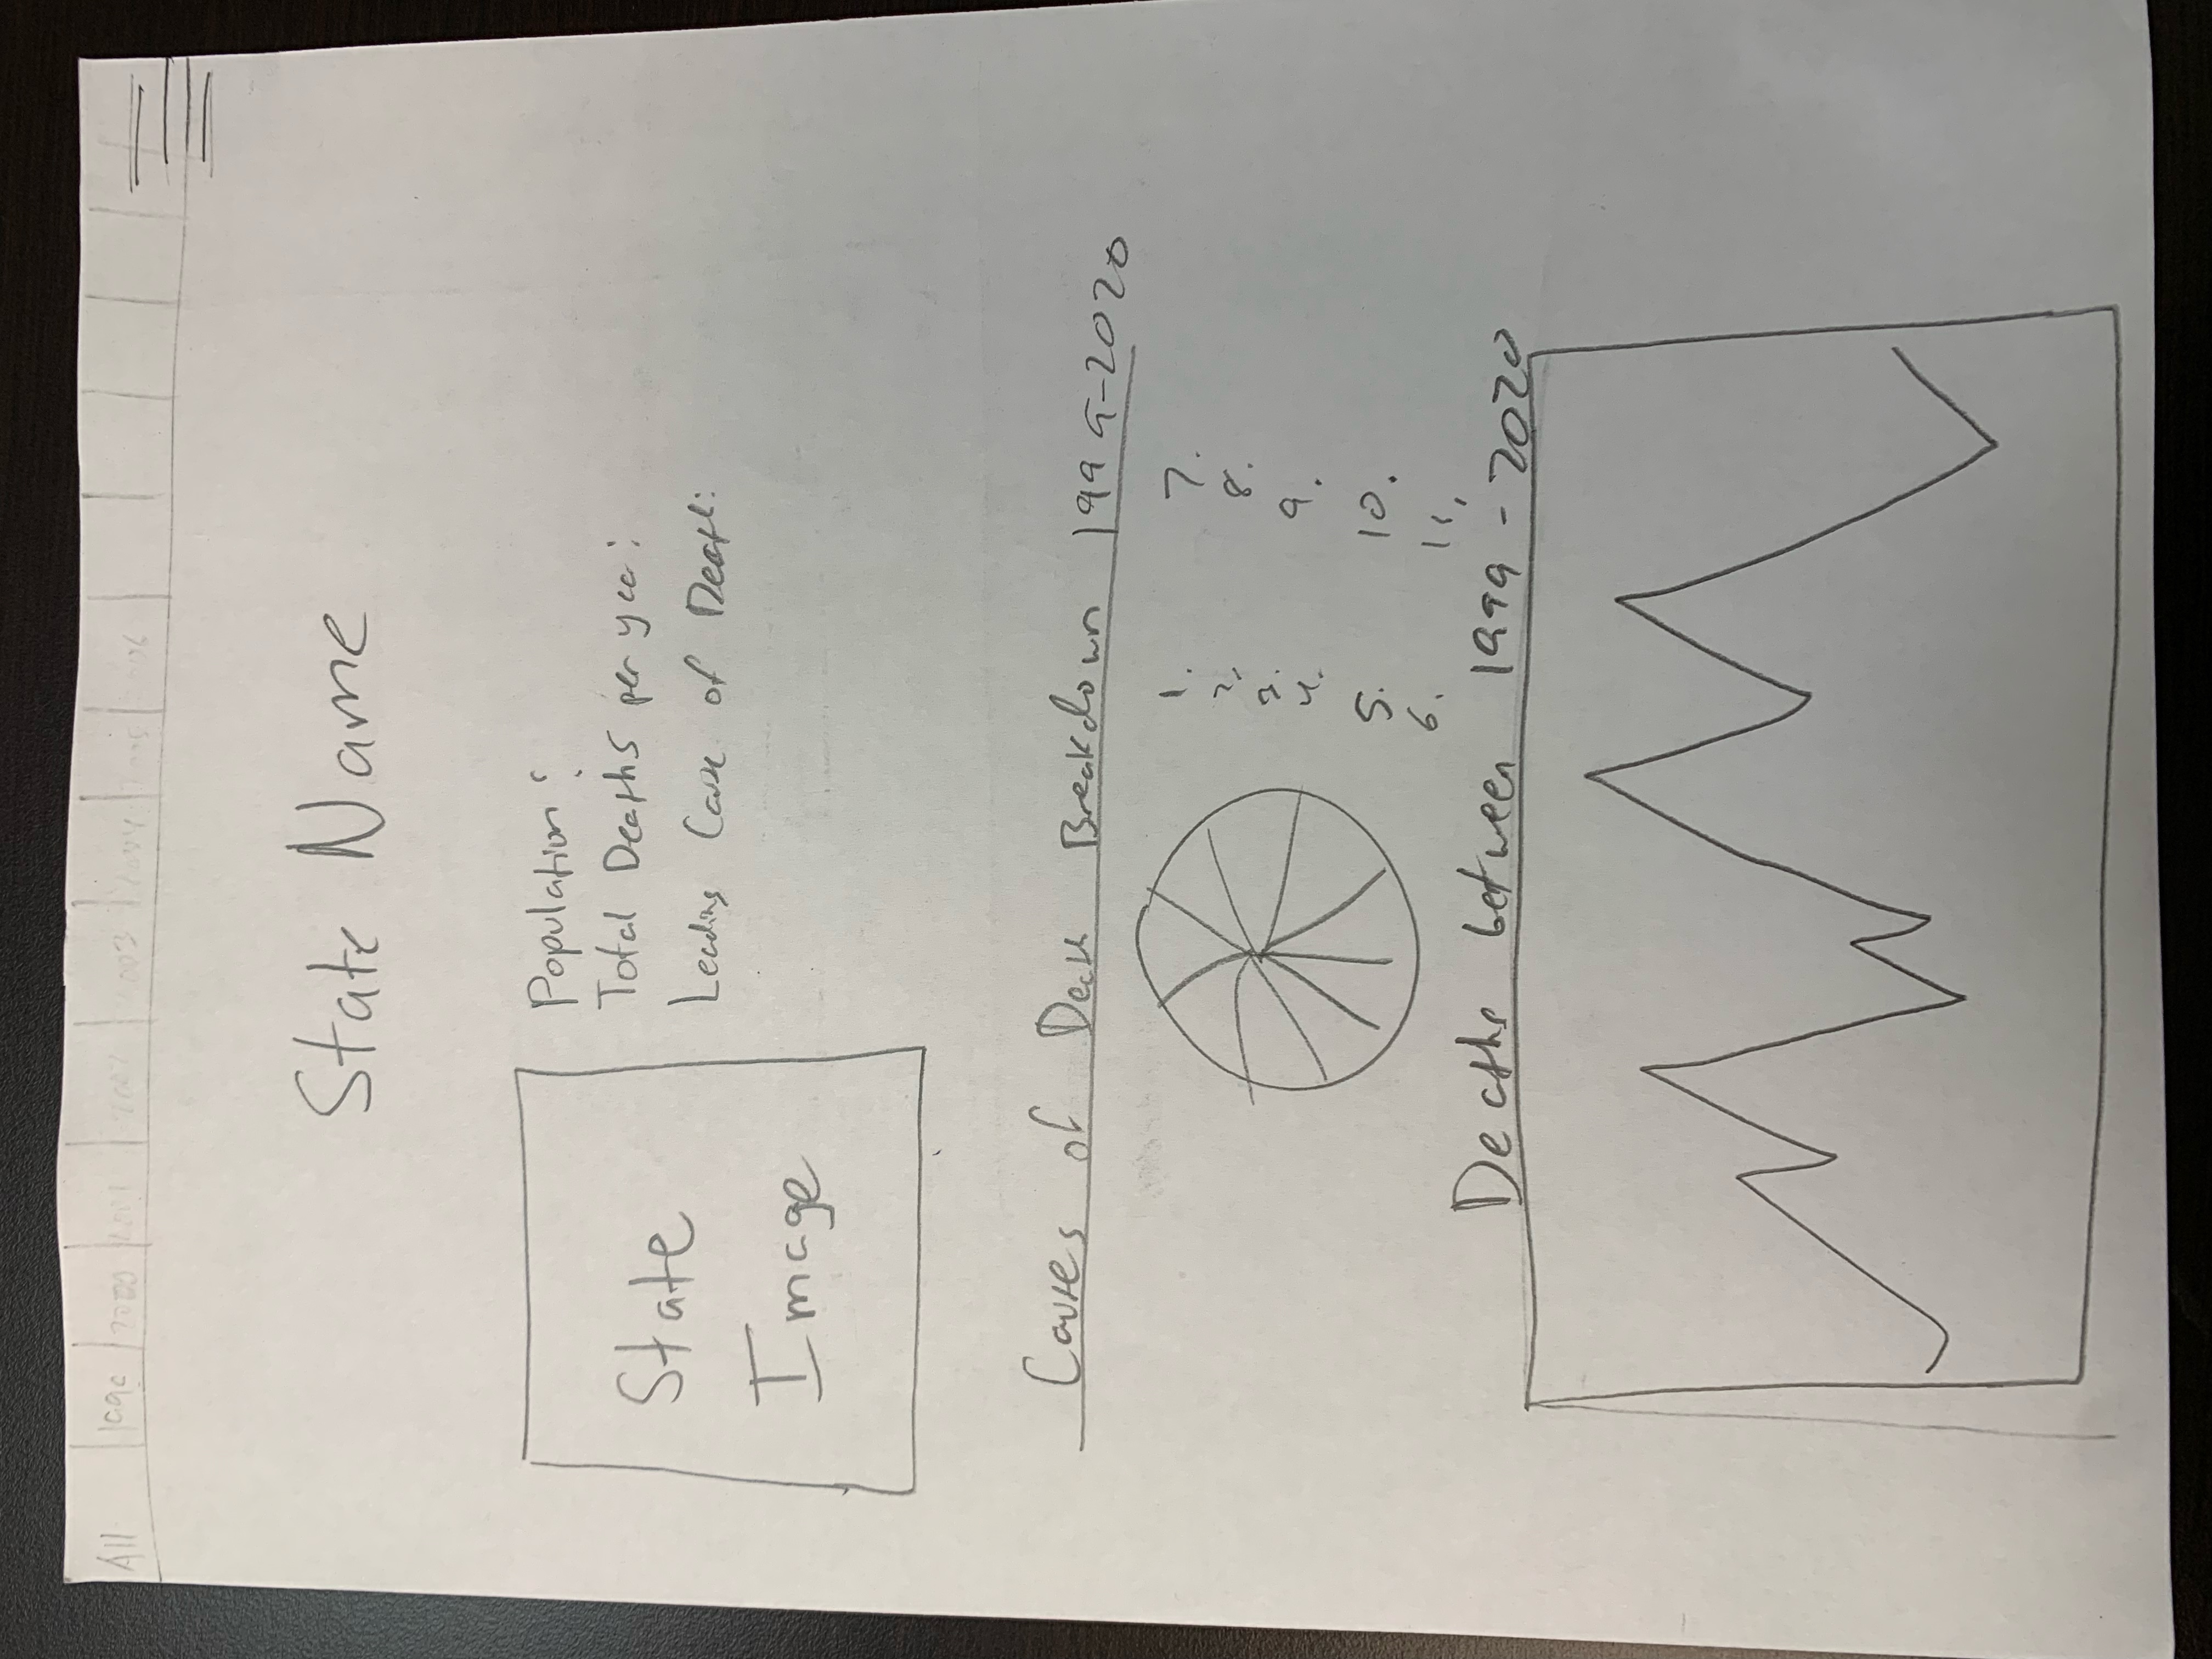 All 1999 2000 2001 2002 2003 2004 2005 2006
State Name
State
Image
Population:
Total Deaths per year:
Leading Cause of Death:
Causes of Death Breakdown 1999-2020
1. 7.
2. 8.
3. 9.
4.
5. 10.
6. 11.
Deaths between 1999-2020